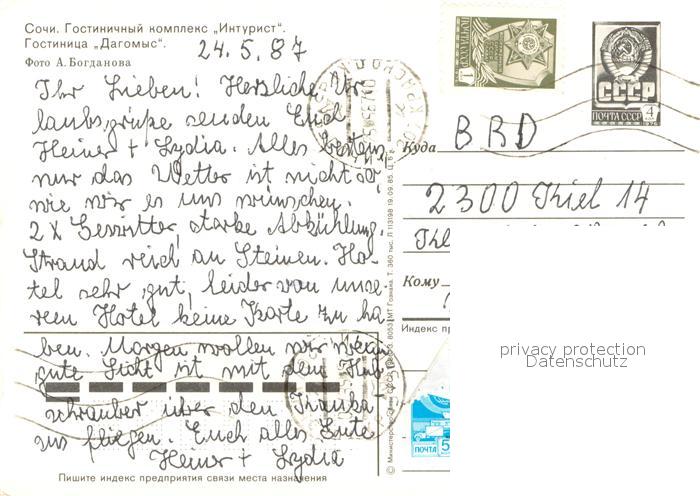 Сочи. Гостиничный комплекс „Интурист".
Гостиница „Дагомыс".
Фото А. Богданова
24.5.87
Ihr Lieben! Herzliche Ur
laubsgrüße senden Euch
Heiner + Lydia. Alles bestens,
nur das Wetter ist nicht so,
wie wir es uns wünschen.
2 x Gewitter, starke Abkühlung.
Strand reich an Steinen. Ho-
tel sehr gut, leider von unse-
rem Hotel keine Karte zu ha
ben. Morgen wollen wir wenn
gute Sicht ist mit dem Hub
schrauber über den Kauka
sus fliegen. Euch alles Gute
Heiner + Lydia
Пишите индекс предприятия связи места назначения
ПОЧТА СССР
1
СССР
ПОЧТА СССР 4
1976
Куда
BRD
2300 Kiel 14
Кому
Индекс пред
ПОЧТА 5
privacy protection
Datenschutz